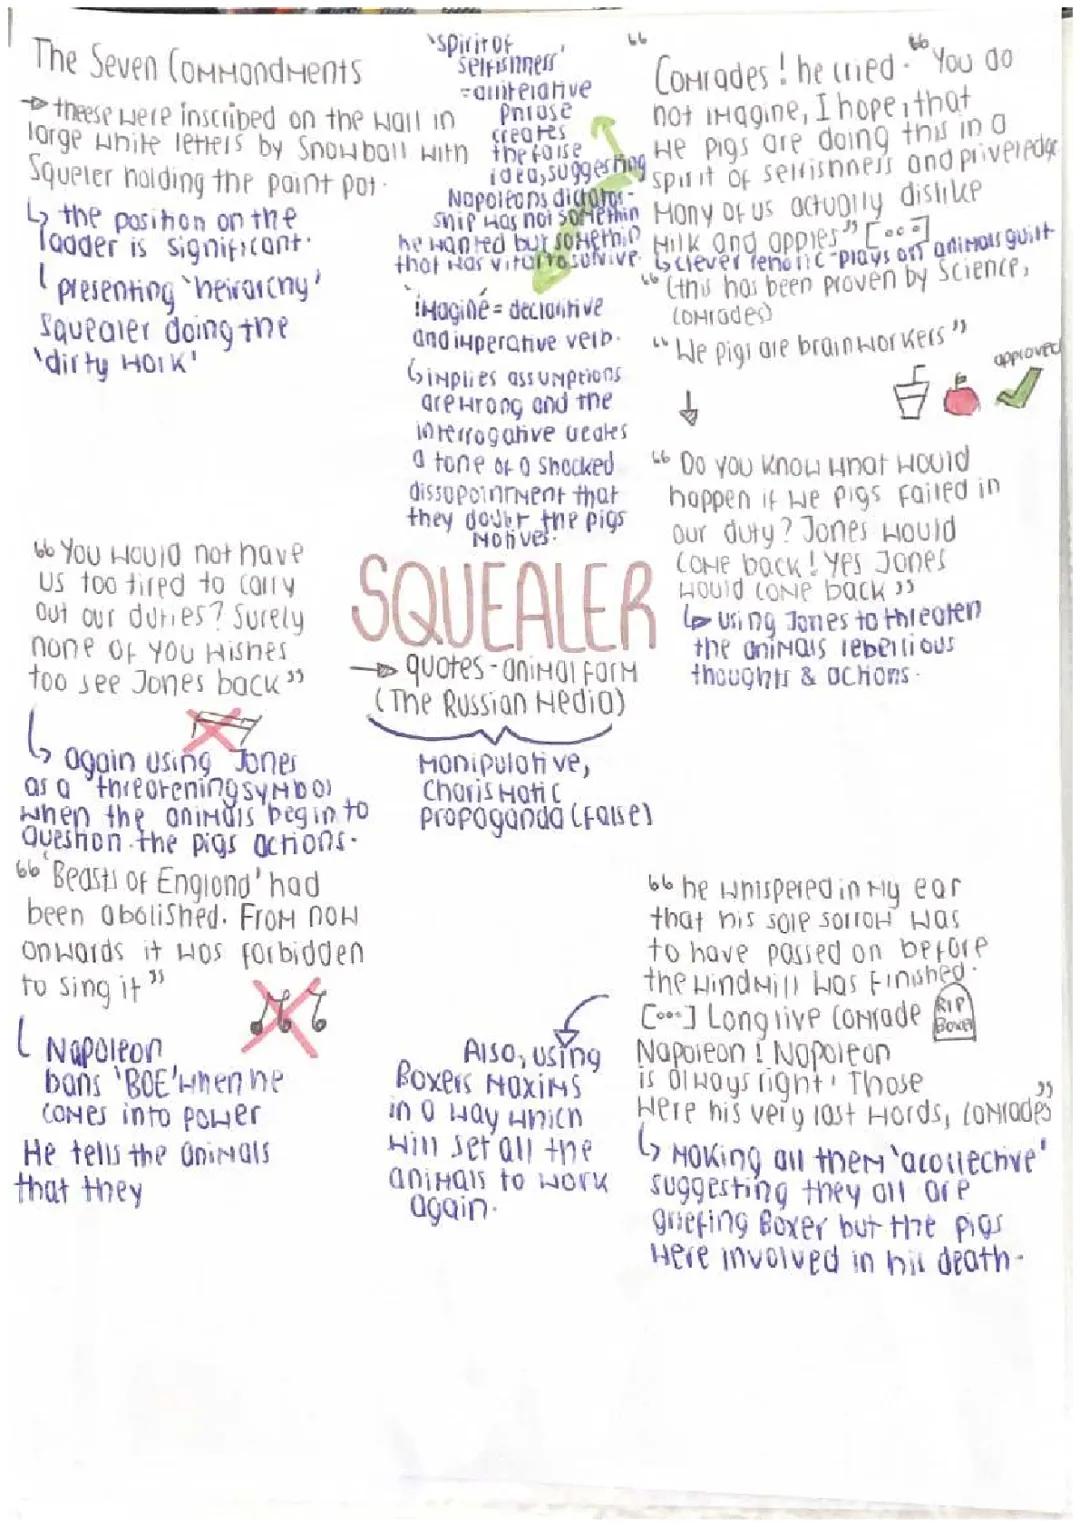 The Seven Commandments
→ theese were inscribed on the wall in
large white letters by Snowball with
Squeler holding the paint pot.
↳ the position on the
ladder is significant.
presenting 'heirarchy'
Squealer doing the
'dirty work'
'spirit of
selfishness'
= aliterative
Phrase
creates
the false
idea, suggesting
Napoleons dictator-
ship was not somethin
he wanted but somethin
that was vital to survive.
'imagine' = declaritive
and imperative verb.
↳ implies assumptions
are wrong and the
interrogative creates
a tone of a shocked
dissapointment that
they doubt the pigs
motives.
"Comrades! he cried. "You do
not imagine, I hope, that
we pigs are doing this in a
spirit of selfishness and priveledge
Many of us actually dislike
Milk and apples" [...]
↳ clever rehtoric - plays off animals guilt
"(this has been proven by Science,
comrades)
"We pigs are brainworkers"
approved
↓
"Do you know what would
happen if we pigs failed in
our duty? Jones would
come back! Yes Jones
would come back"
↳ using Jones to threaten
the animals rebellious
thoughts & actions.
"You would not have
us too tired to carry
out our duties? Surely
none of you wishes
too see Jones back"
↳ again using Jones
as a threatening symbol
when the animals begin to
question the pigs actions.
SQUEALER
→ quotes - animal farm
(The Russian Media)
Manipulative,
Charismatic
propaganda (false)
"'Beasts of England' had
been abolished. From now
onwards it was forbidden
to sing it"
Napoleon
bans 'BOE' when he
comes into power
He tells the animals
that they
Also, using
Boxers maxims
in a way which
will set all the
animals to work
again.
"he whispered in my ear
that his sole sorrow was
to have passed on before
the windmill was finished.
[...] Long live comrade
RIP
Boxer
Napoleon! Napoleon
is always right. Those
were his very last words, comrades"
↳ making all them 'a collective'
suggesting they all are
griefing Boxer but the pigs
were involved in his death.